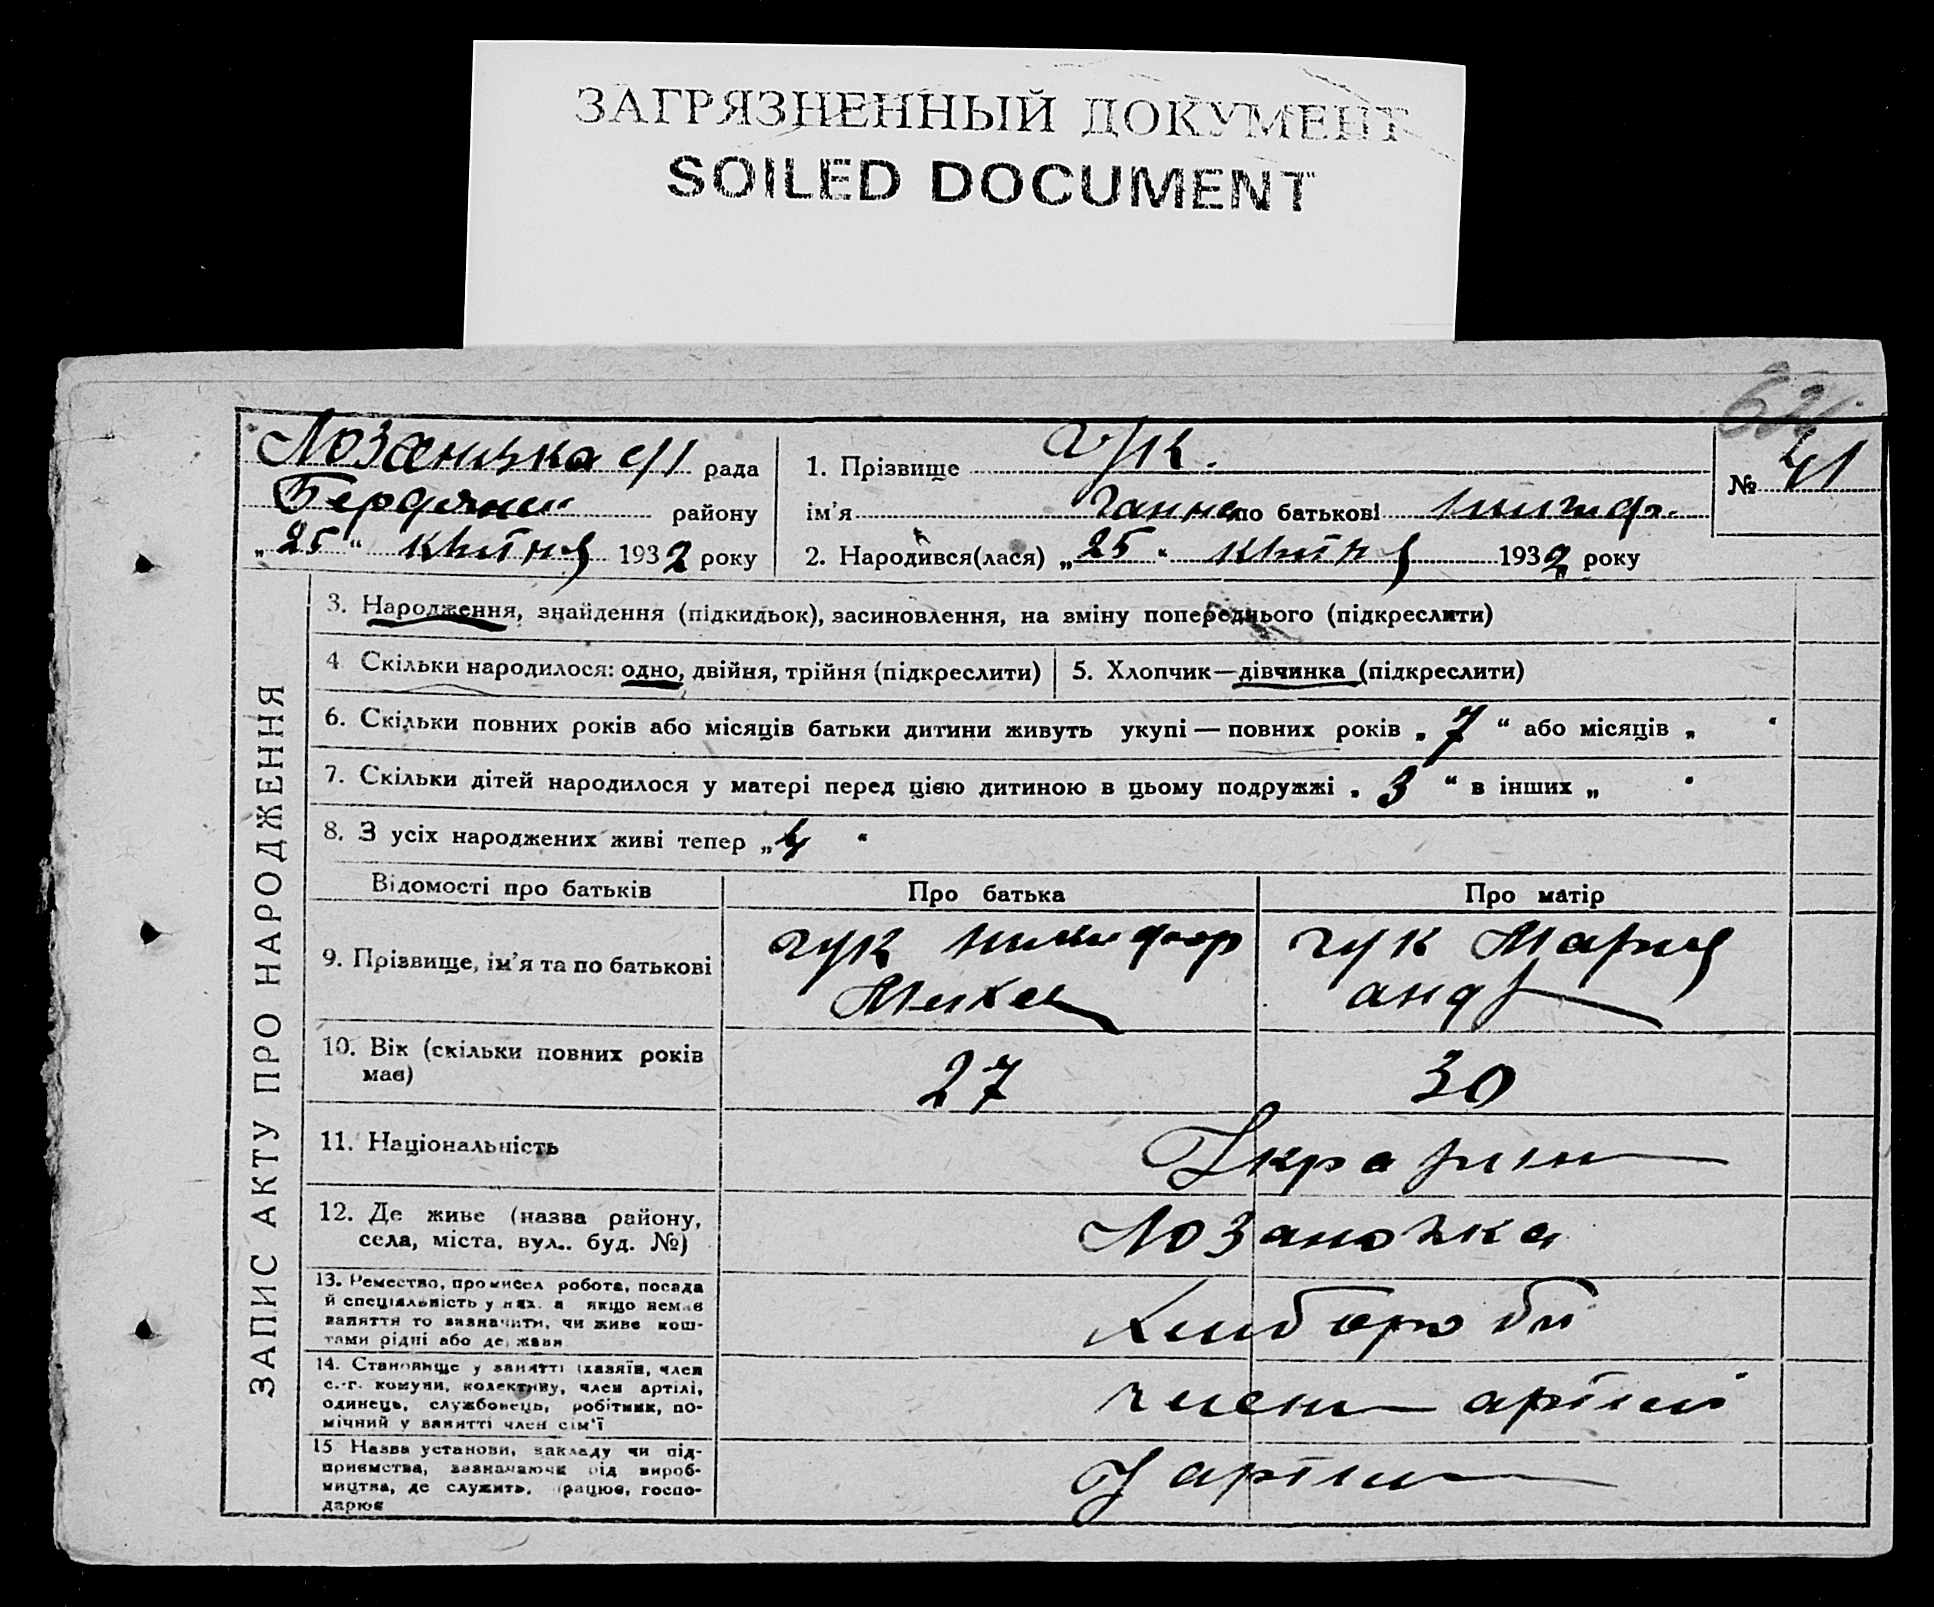 ЗАГРЯЗНЕННЫЙ ДОКУМЕНТ
SOILED DOCUMENT
рада
району
„25“ квітня 1932 року
1. Прізвище Гук.
ім'я Ганна по батькові
2. Народився(лася) „25“ квітня 1932 року
№ 41
ЗАПИС АКТУ ПРО НАРОДЖЕННЯ
3. Народження, знайдення (підкидьок), засиновлення, на зміну попереднього (підкреслити)
4 Скільки народилося: одно, двійня, трійня (підкреслити)
5. Хлопчик—дівчинка (підкреслити)
6. Скільки повних років або місяців батьки дитини живуть укупі — повних років „7“ або місяців „ “
7. Скільки дітей народилося у матері перед цією дитиною в цьому подружжі „3“ в інших „ “
8. З усіх народжених живі тепер „4“
Відомості про батьків
Про батька
Про матір
9. Прізвище, ім'я та по батькові
Гук Никифор
Гук Мария
10. Вік (скільки повних років
має)
27
30
11. Національність
12. Де живе (назва району,
села, міста, вул.. буд. №)
13. Ремество, промисел робота, посада
й спеціяльність у них, а якщо немає
заняття то зазначити, чи живе кош-
тами рідні або держави
14. Становище у занятті (хазяїн, член
с.-г. комуни, колективу, член артілі,
одинець, службовець, робітник, по-
мічний у занятті член сім'ї
15 Назва установи, закладу чи під-
приємства, зазначаючи рід вироб-
ництва, де служить, працює, госпо-
дарює